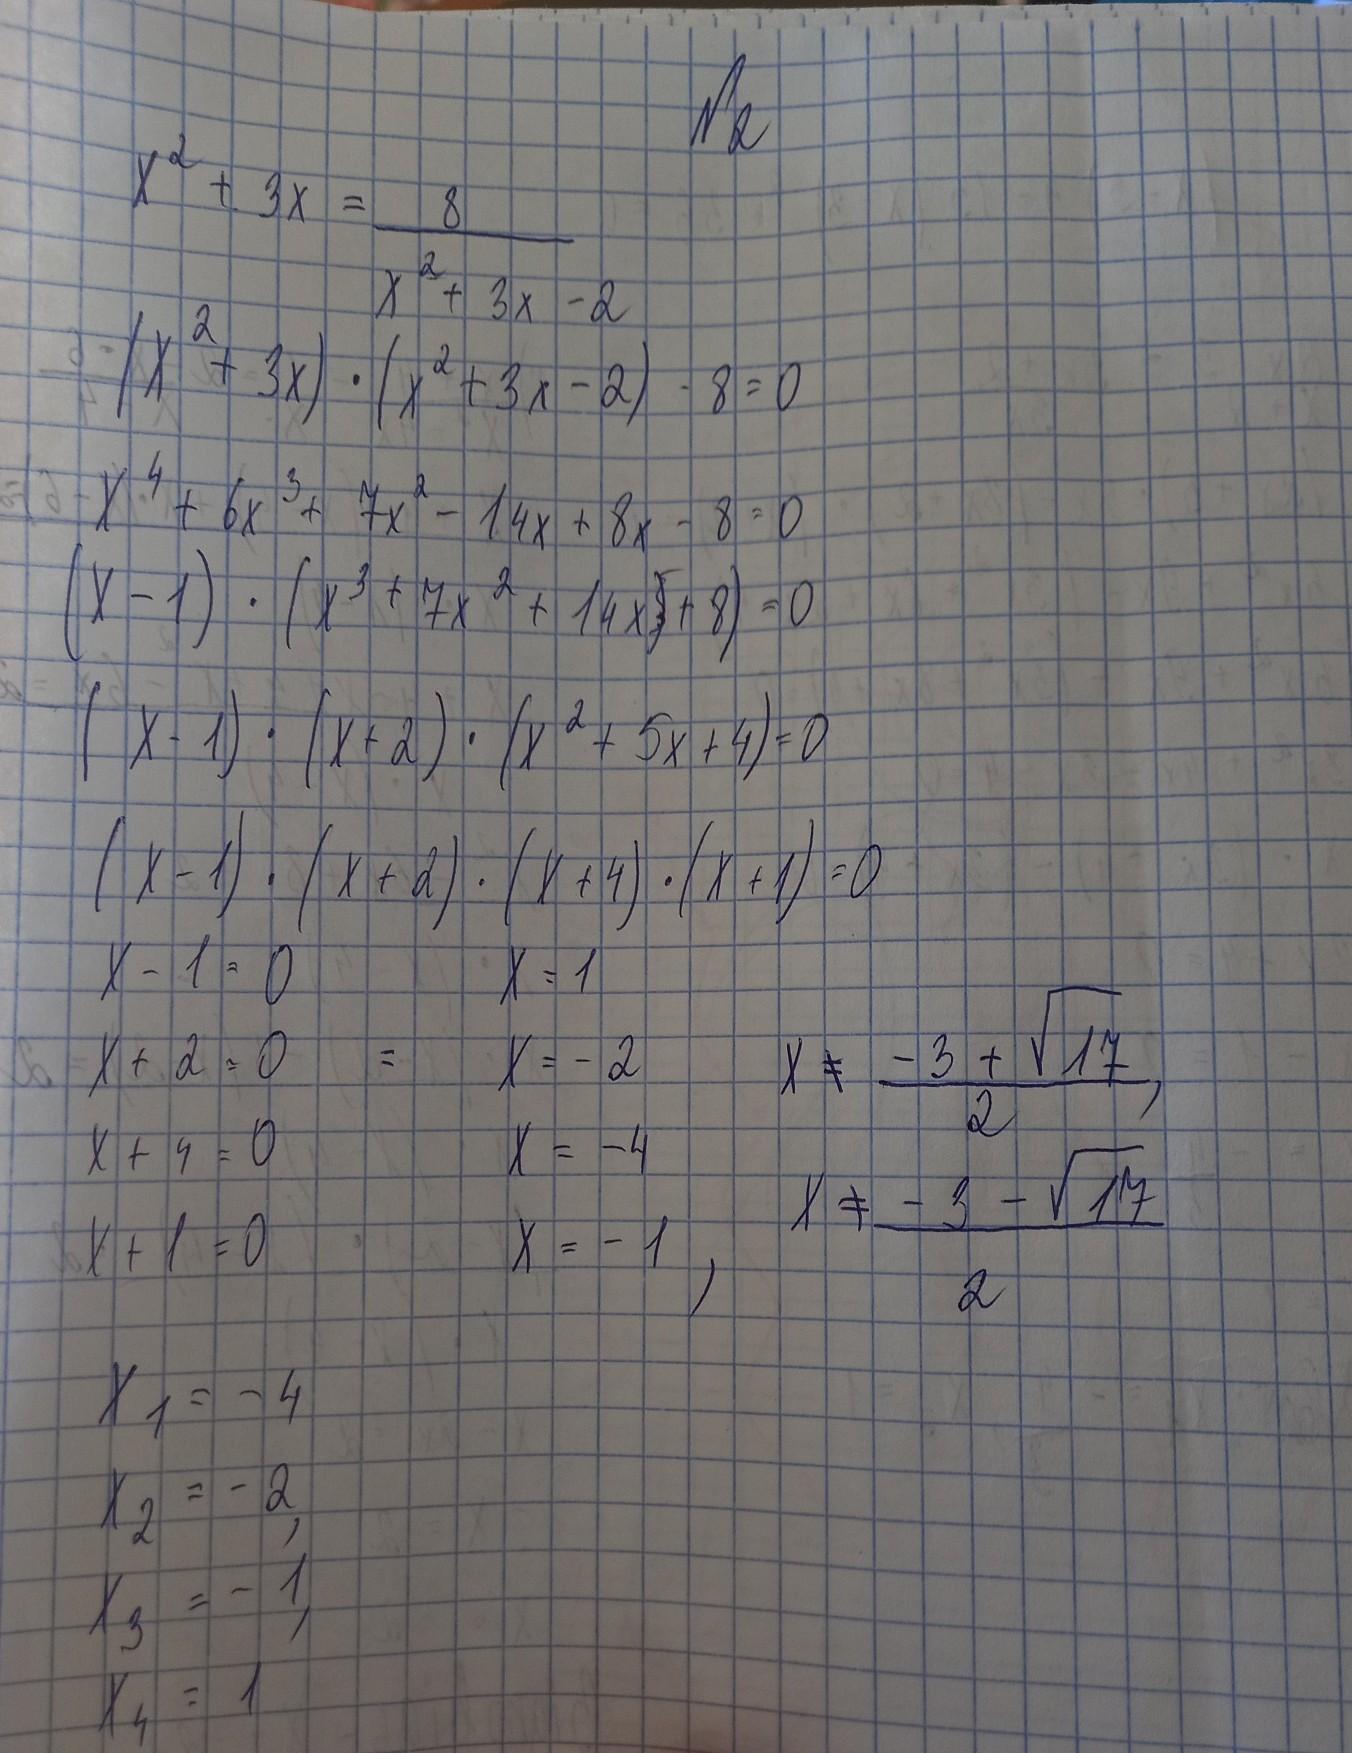 №2
x² + 3x = 8 / (x² + 3x - 2)
(x² + 3x) · (x² + 3x - 2) - 8 = 0
x⁴ + 6x³ + 7x² - 14x + 8x - 8 = 0
(x - 1) · (x³ + 7x² + 14x + 8) = 0
(x - 1) · (x + 2) · (x² + 5x + 4) = 0
(x - 1) · (x + 2) · (x + 4) · (x + 1) = 0
x - 1 = 0 x = 1
x + 2 = 0 = x = -2 x ≠ (-3 + √17) / 2,
x + 4 = 0 x = -4
x + 1 = 0 x = -1, x ≠ (-3 - √17) / 2
x₁ = -4
x₂ = -2,
x₃ = -1,
x₄ = 1